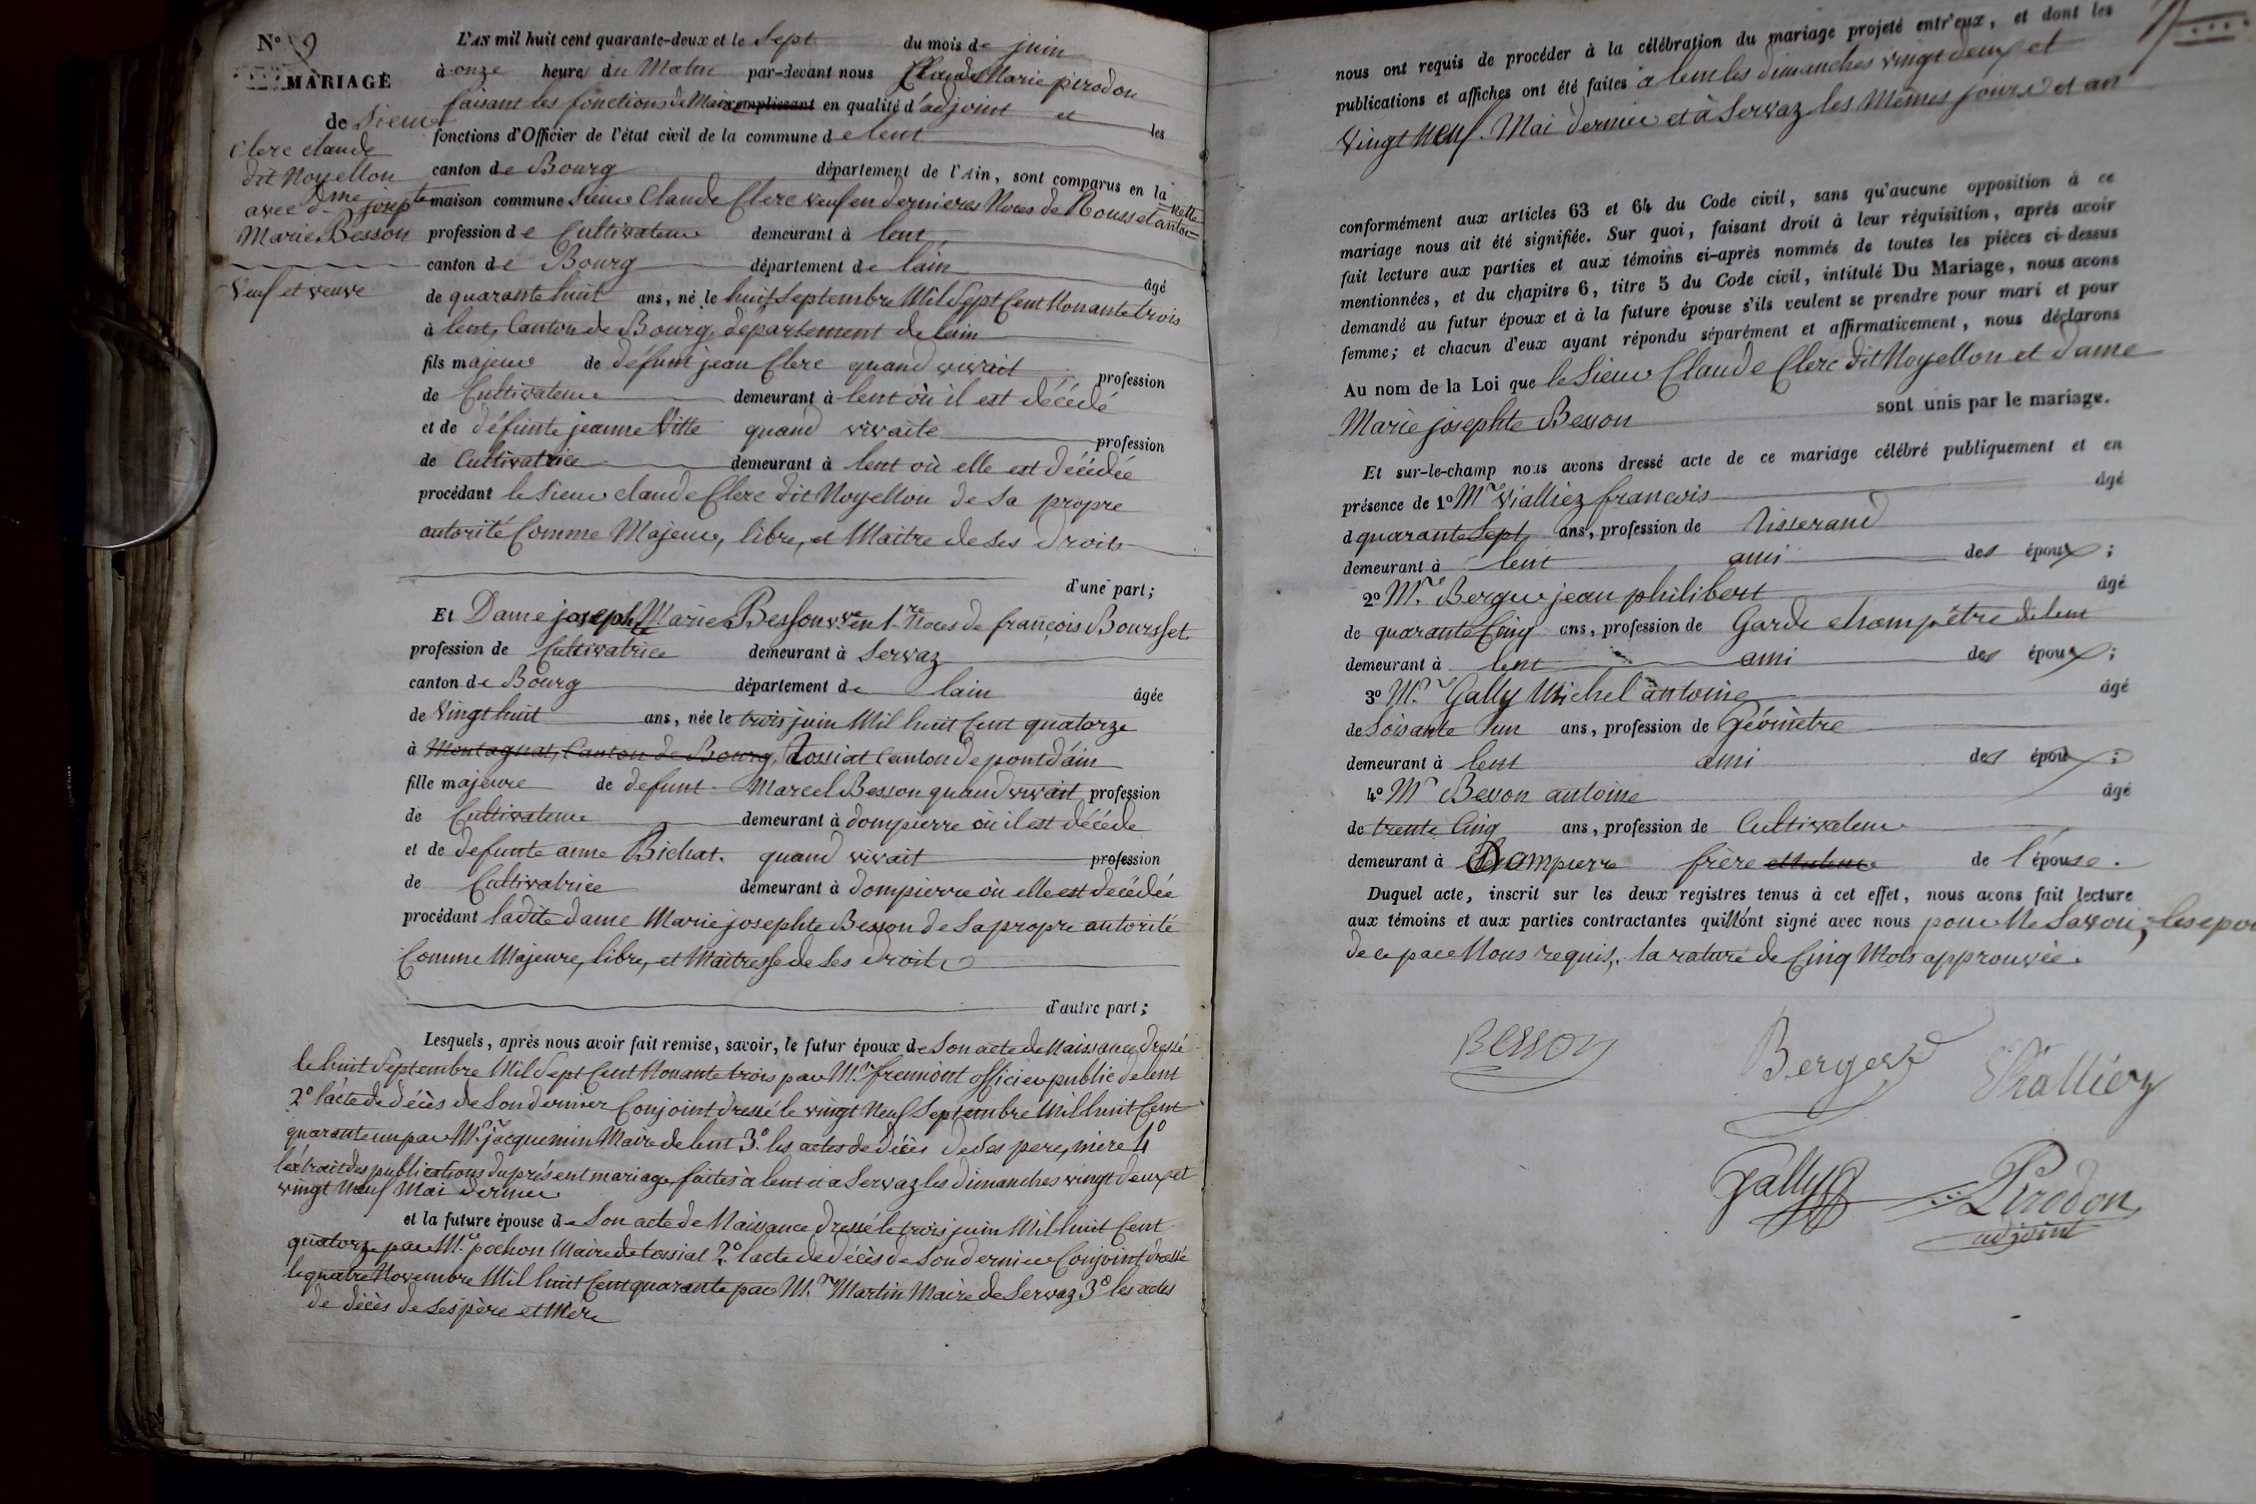 N.° 9
MARIAGE
de Sieur
Clerc claude
dit Noyellon
avec dme josepte
Marie Besson
Veuf et veuve
L'AN mil huit cent quarante-deux et le Sept du mois de juin
à onze heures du Matin par-devant nous Claude Marie pirodon
faisant les fonctions de Maire remplissant en qualité d'adjoint et les
fonctions d'Officier de l'état civil de la commune de lent
canton de Bourg département de l'Ain, sont comparus en la
maison commune Sieur Claude Clerc veuf en dernieres Noces de Rousset antoinette
profession de Cultivateur demeurant à lent
canton de Bourg département de lain âgé
de quarante huit ans, né le huit Septembre Mil Sept Cent Nonante trois
à lent, Canton de Bourg, département de lain
fils majeur de defunt jean Clerc quand vivait profession
de Cultivateur demeurant à lent où il est décédé
et de défunte jeanne Vitte quand vivaite profession
de Cultivatrice demeurant à lent où elle est décédée
procédant le Sieur claude Clerc dit Noyellon de Sa propre
autorité Comme Majeur, libre, et Maitre de Ses droits
d'une part;
Et Dame josephte Marie Besson vve en 1re Noces de françois Boursset
profession de Cultivatrice demeurant à Servaz
canton de Bourg département de lain âgée
de Vingt huit ans, née le trois juin Mil huit Cent quatorze
à Montagnat, Canton de Bourg, tossiat Canton de pont d'ain
fille majeure de defunt Marcel Besson quand vivait profession
de Cultivateur demeurant à dompierre où il est décédé
et de defunte anne Bichat. quand vivait profession
de Cultivatrice demeurant à dompierre où elle est decédée
procédant ladite dame Marie josephte Besson de Sa propre autorité
Comme Majeure, libre, et Maitresse de Ses droits
d'autre part;
Lesquels, après nous avoir fait remise, savoir, le futur époux de Son acte de Naissance dressé
le huit Septembre Mil Sept Cent Nonante trois par Mr fremont officier public de lent
2° l'acte de décès de Son dernier Conjoint dressé le vingt Neuf Septembre Mil huit Cent
quarante un par Mr jacquemin Maire de lent 3° les actes de décès de Ses pere, mère 4°
l'extrait des publications du présent mariage faites à lent et à Servaz les dimanches vingt deux et
vingt Neuf Mai dernier
et la future épouse de Son acte de Naissance dressé le trois juin Mil huit Cent
quatorze par Mr pochon Maire de tossiat 2° l'acte de décès de Son dernier Conjoint dressé
le quatre Novembre Mil huit Cent quarante par Mr Martin Maire de Servaz 3° les actes
de décès de Ses père et Mère
nous ont requis de procéder à la célébration du mariage projeté entr'eux, et dont les
publications et affiches ont été faites à lent les dimanches vingt deux et
Vingt Neuf Mai dernier et à Servaz les Mêmes jours et an
conformément aux articles 63 et 64 du Code civil, sans qu'aucune opposition à ce
mariage nous ait été signifiée. Sur quoi, faisant droit à leur réquisition, après avoir
fait lecture aux parties et aux témoins ci-après nommés de toutes les pièces ci-dessus
mentionnées, et du chapitre 6, titre 5 du Code civil, intitulé Du Mariage, nous avons
demandé au futur époux et à la future épouse s'ils veulent se prendre pour mari et pour
femme; et chacun d'eux ayant répondu séparément et affirmativement, nous déclarons
Au nom de la Loi que le Sieur Claude Clerc dit Noyellon et dame
Marie josephte Besson sont unis par le mariage.
Et sur-le-champ nous avons dressé acte de ce mariage célébré publiquement et en
présence de 1° Mr Vialliez francois âgé
d quarante Sept ans, profession de tisserand
demeurant à lent ami des époux;
2° Mr. Berger jean philibert âgé
de quarante Cinq ans, profession de Garde champêtre de lent
demeurant à lent ami des époux;
3° Mr. Gally Michel antoine âgé
de Soisante un ans, profession de Géomètre
demeurant à lent ami des époux;
4° Mr Besson antoine âgé
de trente Cinq ans, profession de Cultivateur
demeurant à Dompierre frère de l'épouse.
Duquel acte, inscrit sur les deux registres tenus à cet effet, nous avons fait lecture
aux témoins et aux parties contractantes qui l'ont signé avec nous pour Ne Savoir, les epou
de ce par Nous requis, la rature de Cinq Mots approuvée.
Besson
Berger
Vialliez
Gally
Pirodon
adjoint